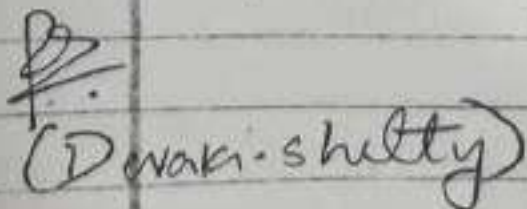 (Devaki. shetty)